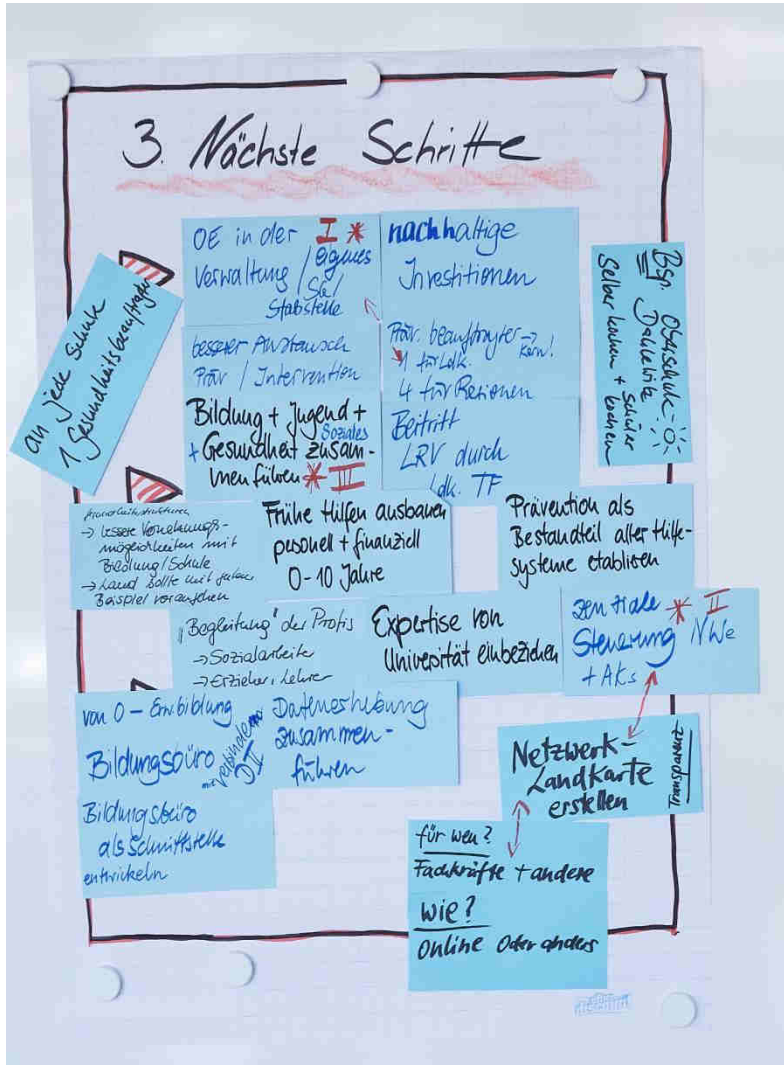 3. Nächste Schritte
an jede Schule
1 Gesundheitsbeauftragter
OE in der I *
Verwaltung / eigenes
SG/
Stabstelle
nachhaltige
Investitionen
Bsp. Oberschule
Dahlewitz
Selber kochen + Schüler
kochen
besserer Austausch
Präv / Intervention
Präv. beauftragter → Kern!
1 für Ldk.
4 für Regionen
Bildung + Jugend +
Soziales
+ Gesundheit zusam-
menführen * III
Beitritt
LRV durch
Ldk. TF
→ bessere
möglichkeiten mit
Bildung/Schule
→ Land sollte mit gutem
Beispiel vorangehen
Frühe Hilfen ausbauen
pesonell + finanziell
0-10 Jahre
Prävention als
Bestandteil aller Hilfe-
systeme etablieren
"Begleitung" der Profis
→ Sozialarbeiter
→ Erzieher, Lehrer
Expertise von
Universität einbeziehen
zentrale * II
Steuerung NWe
+ AKs
von 0 –
Bildungsbüro
verbinden
DII
Datenerhebung
zusammen-
führen
Bildungsbüro
als Schnittstelle
entwickeln
Netzwerk-
Landkarte
erstellen
Transparenz
für wen?
Fachkräfte + andere
wie?
online oder anders